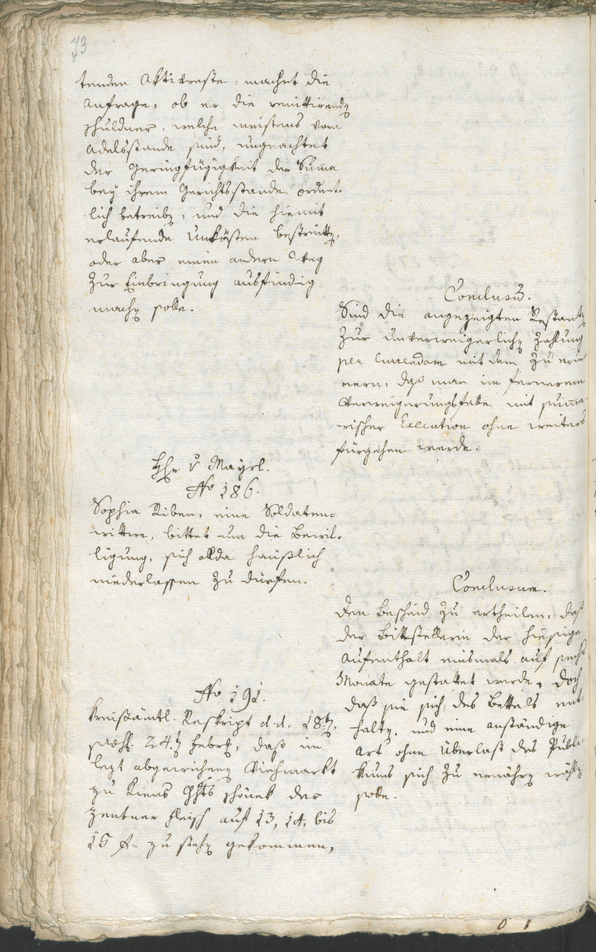 73
tenden Aktivreste, machet die
Anfrage, ob er die renitirende
Schuldner, welche meistens vom
Adelsstande sind, ungeachtet
der Geringfügigkeit der Suma
bey ihrem Gerichtsstande ordent-
lich betreiben, und die hiemit
erlaufende Unkösten bestreitten,
oder aber einen andern Weg
zur Einbringung ausfindig
machen solle.
Conclusum.
Sind die angezeigten Restanten
zur unverweigerlichen Zahlung
per Currendam mit dem zu erin-
nern, daß man im fernerem
Verweigerungsfalle mit suma-
rischer Execution ohne weiters
fürgehen werde.
Hr v Mayrl.
No 186.
Sophia Riben, eine Soldaten-
wittwe, bittet um die Bewil-
ligung, sich allda häußlich
niederlassen zu dürfen.
Conclusum.
Den Bescheid zu ertheilen, daß
der Bittstellerin der hiesige
Aufenthalt einsmals auf sechs
Monate gestattet werde, doch
daß sie sich des Bettels ent-
halten, und eine anständige
Art ohne Überlast des Publi-
kums sich zu ernähren wählen
solle.
No 191.
Kreisämtl. Reskript d.d. 18ten,
24.ten Febr., daß im
lezt abgewichenen Viehmarkt
zu Lienz Ghts Schöneck der
Zentner Fleisch auf 13, 14, bis
15 f. zu stehen gekommen,